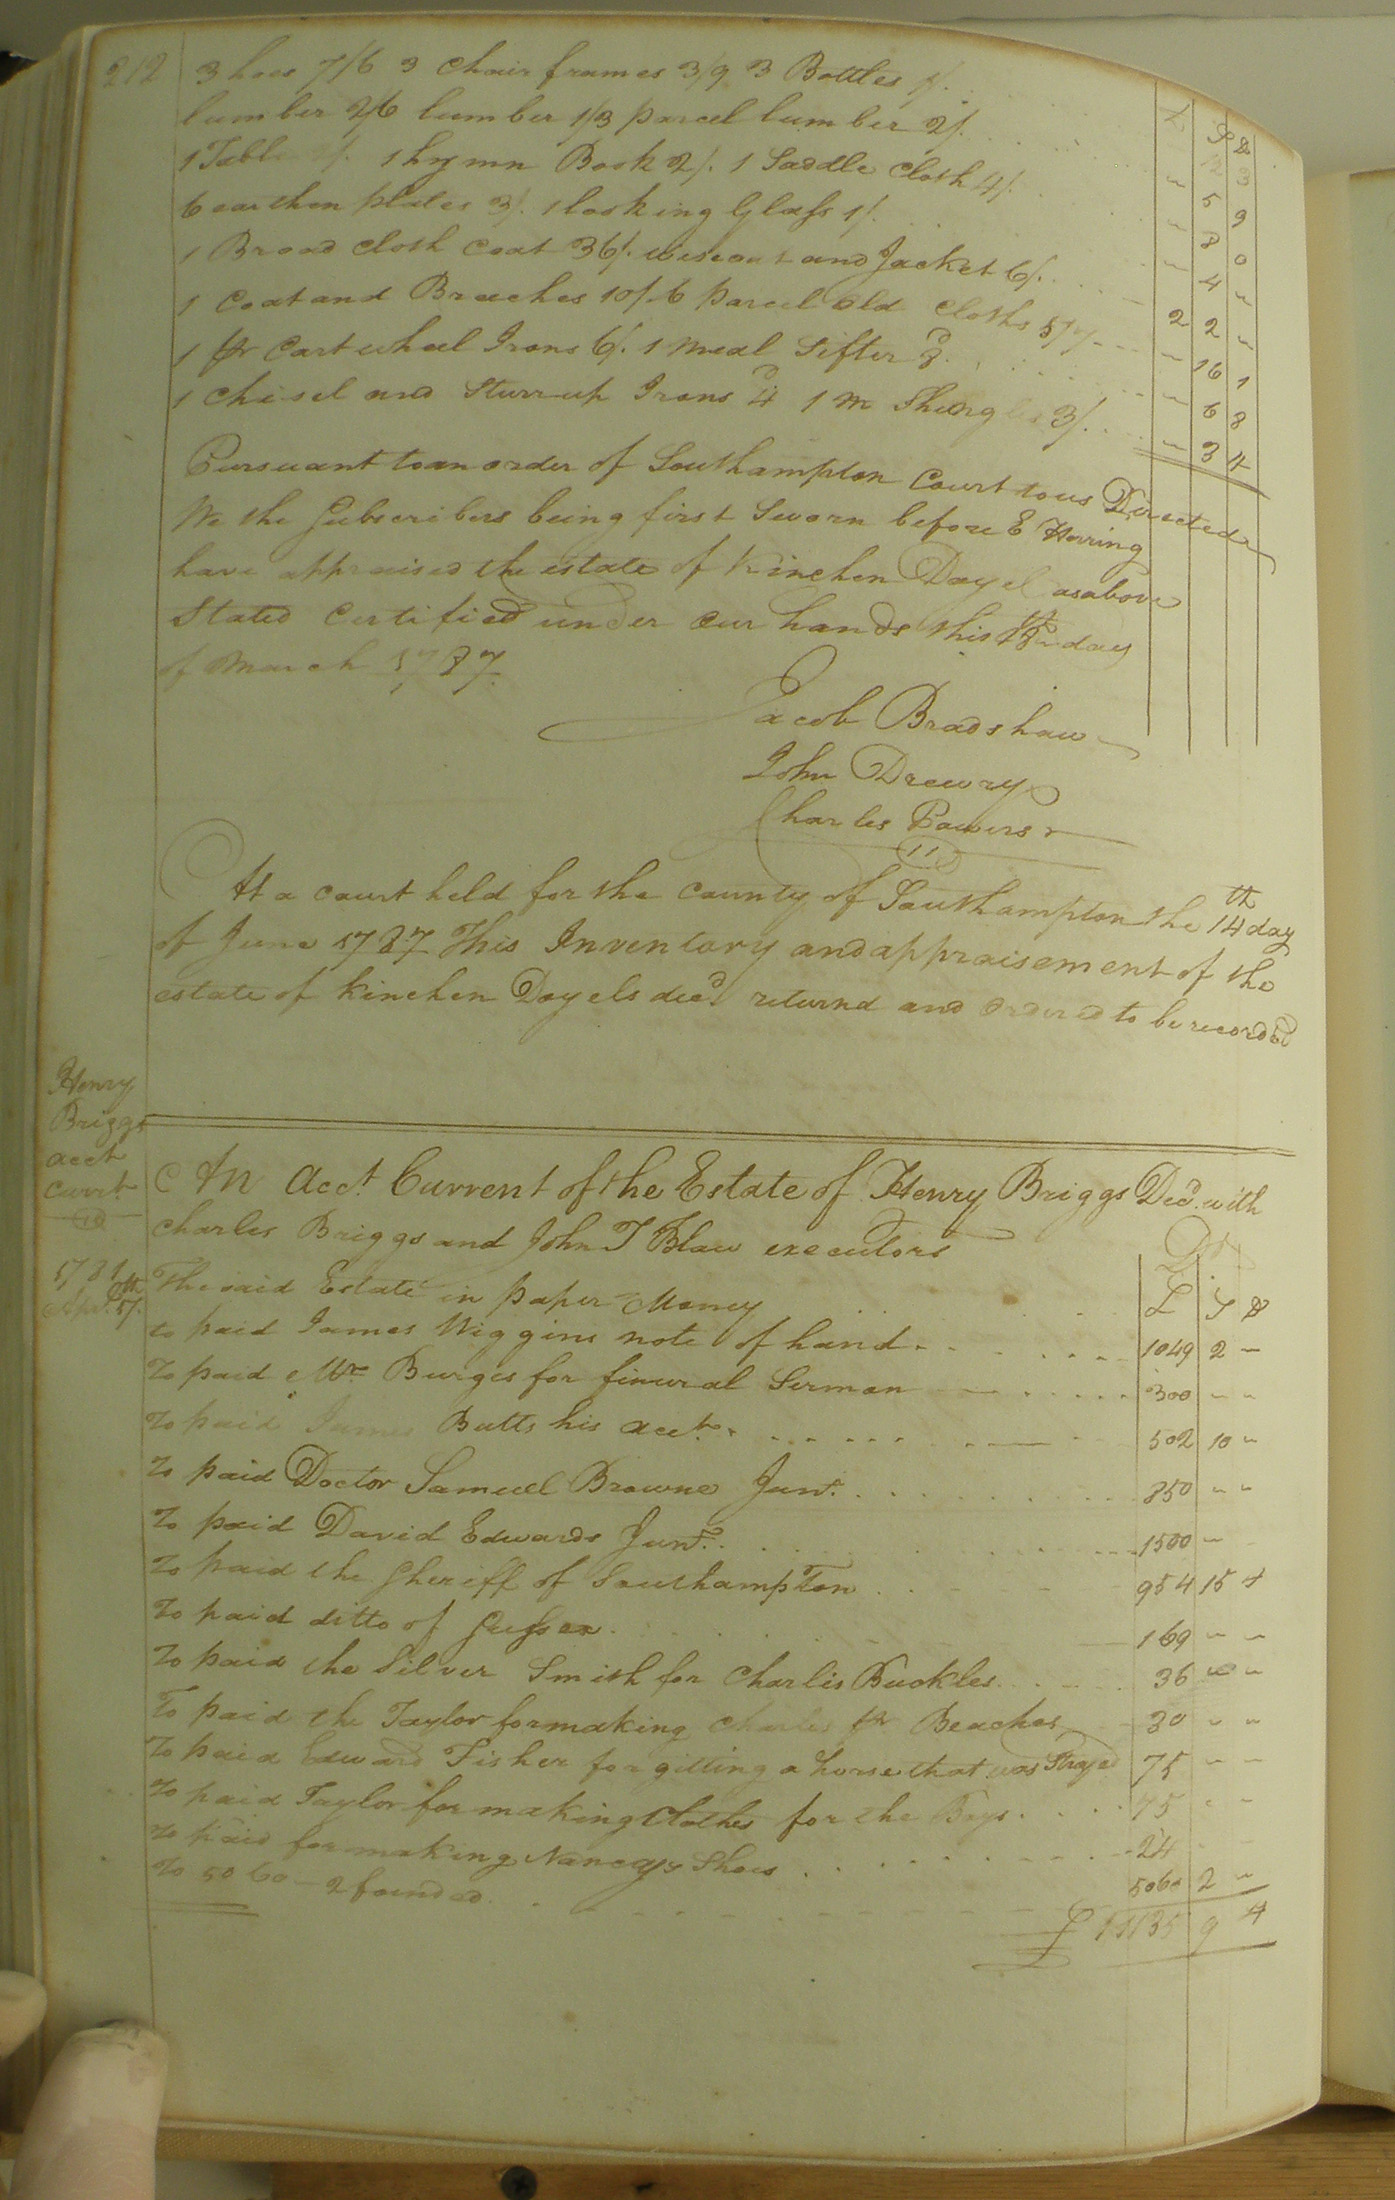 212 3 hoes 7/6 3 Chair frames 3/9 3 Bottles 1/.
£ S D
lumber 2/6 lumber 1/3 parcel lumber 2/. 5 9
1 Table 1 hymn Book 2/. 1 Saddle Cloth 4/. 8 0
6 earthen plates 3/. 1 looking Glass 1/. 4 "
1 Broad Cloth Coat 36/. wiscout and Jacket 6/. 2 2 "
1 Coat and Breaches 10/6 parcel Old Cloths 5/7 " 16 1
1 pr Cart wheel Irons 6/. 1 meal Sifter 8d " 6 8
1 Chisel and Sturrup Irons 4d 1 M Shingles 3/. " 3 4
Pursuant to an order of Southampton Court to us Directed
We the Subscribers being first Sworn before E Herring
have appraised the estate of Kinchen Dayel as above
Stated Certified under our hands this day
of March 1787
Jacob Bradshaw
John Drewry
Charles Powers
At a Court held for the County of Southampton the 14th day
of June 1787 This Inventory and appraisement of the
estate of Kinchen Doyels decd returnd and Ordered to be recorded
Henry
Briggs
acct
Currt
An Acct. Current of the Estate of Henry Briggs Decd. with
Charles Briggs and John T Blaw executors Dr
1781
Apr. 5th. The said Estate in paper Money £ S D
to paid James Wiggins note of hand 1049 2 "
To paid Mr Burges for funural Sermon 300 " "
To paid James Butts his acct. 502 10 "
To paid Doctor Samuel Browne Junr. 850 " "
To paid David Edwards Junr. 1500 "
To paid the Sheriff of Southampton 954 15 4
To paid ditto of Sussex 169 " "
To paid the Silver Smith for Charlis Buckles 36 " "
To paid the Taylor for making Charles pr Beaches 30 " "
To paid Edward Fisher for gitting a horse that was Strayed 75 " "
To paid Taylor for making Clothes for the Boys 75 " "
To paid for making Nancays Shoes 24
To 5060 - 2 founded 5060 2 "
£ 11135 9 4